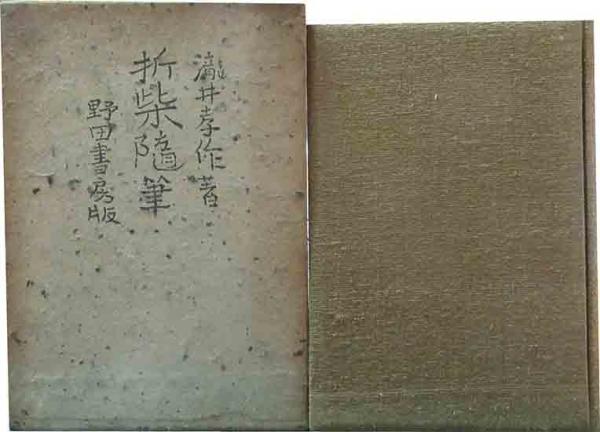 瀧井孝作著
折柴随筆
野田書房版